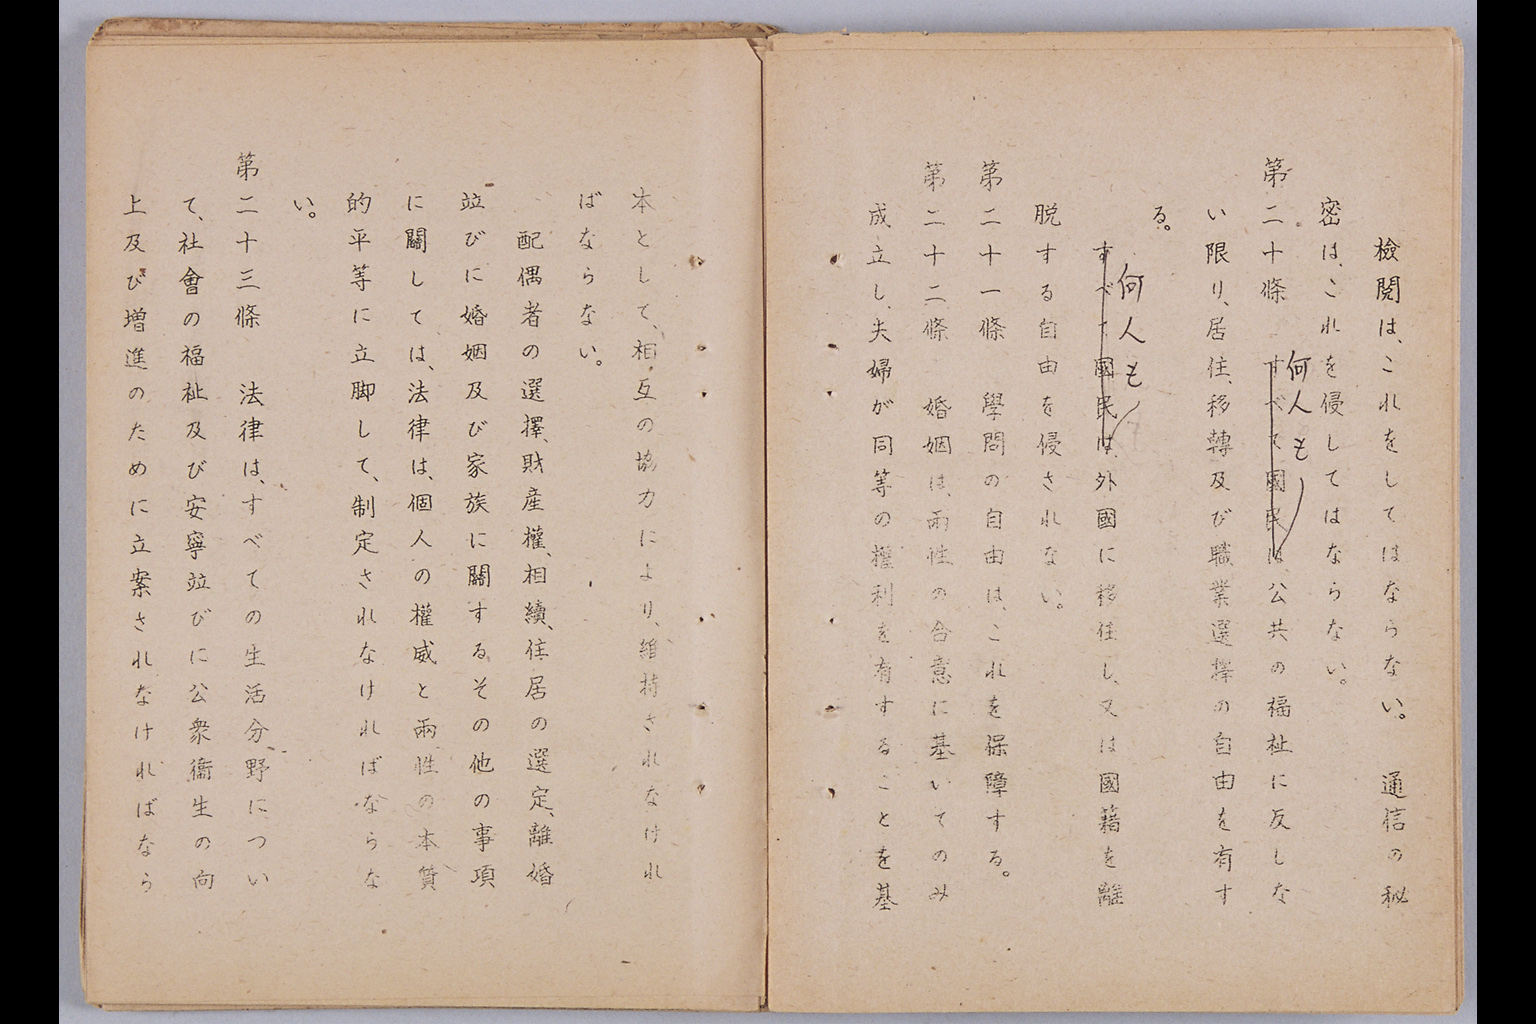 檢閲は、これをしてはならない。　通信の秘
密は、これを侵してはならない。
第二十條　すべて國民は公共の福祉に反しな
何人も
い限り、居住、移轉及び職業選擇の自由を有す
る。
何人も
すべて國民は、外國に移住し、又は國籍を離
脱する自由を侵されない。
第二十一條　學問の自由は、これを保障する。
第二十二條　婚姻は、兩性の合意に基いてのみ
成立し、夫婦が同等の權利を有することを基
本として、相互の協力により、維持されなけれ
ばならない。
配偶者の選擇、財産權、相續、住居の選定、離婚
竝びに婚姻及び家族に關するその他の事項
に關しては、法律は、個人の權威と兩性の本質
的平等に立脚して、制定されなければならな
い。
第二十三條　法律は、すべての生活分野につい
て、社會の福祉及び安寧竝びに公衆衞生の向
上及び増進のために立案されなければなら